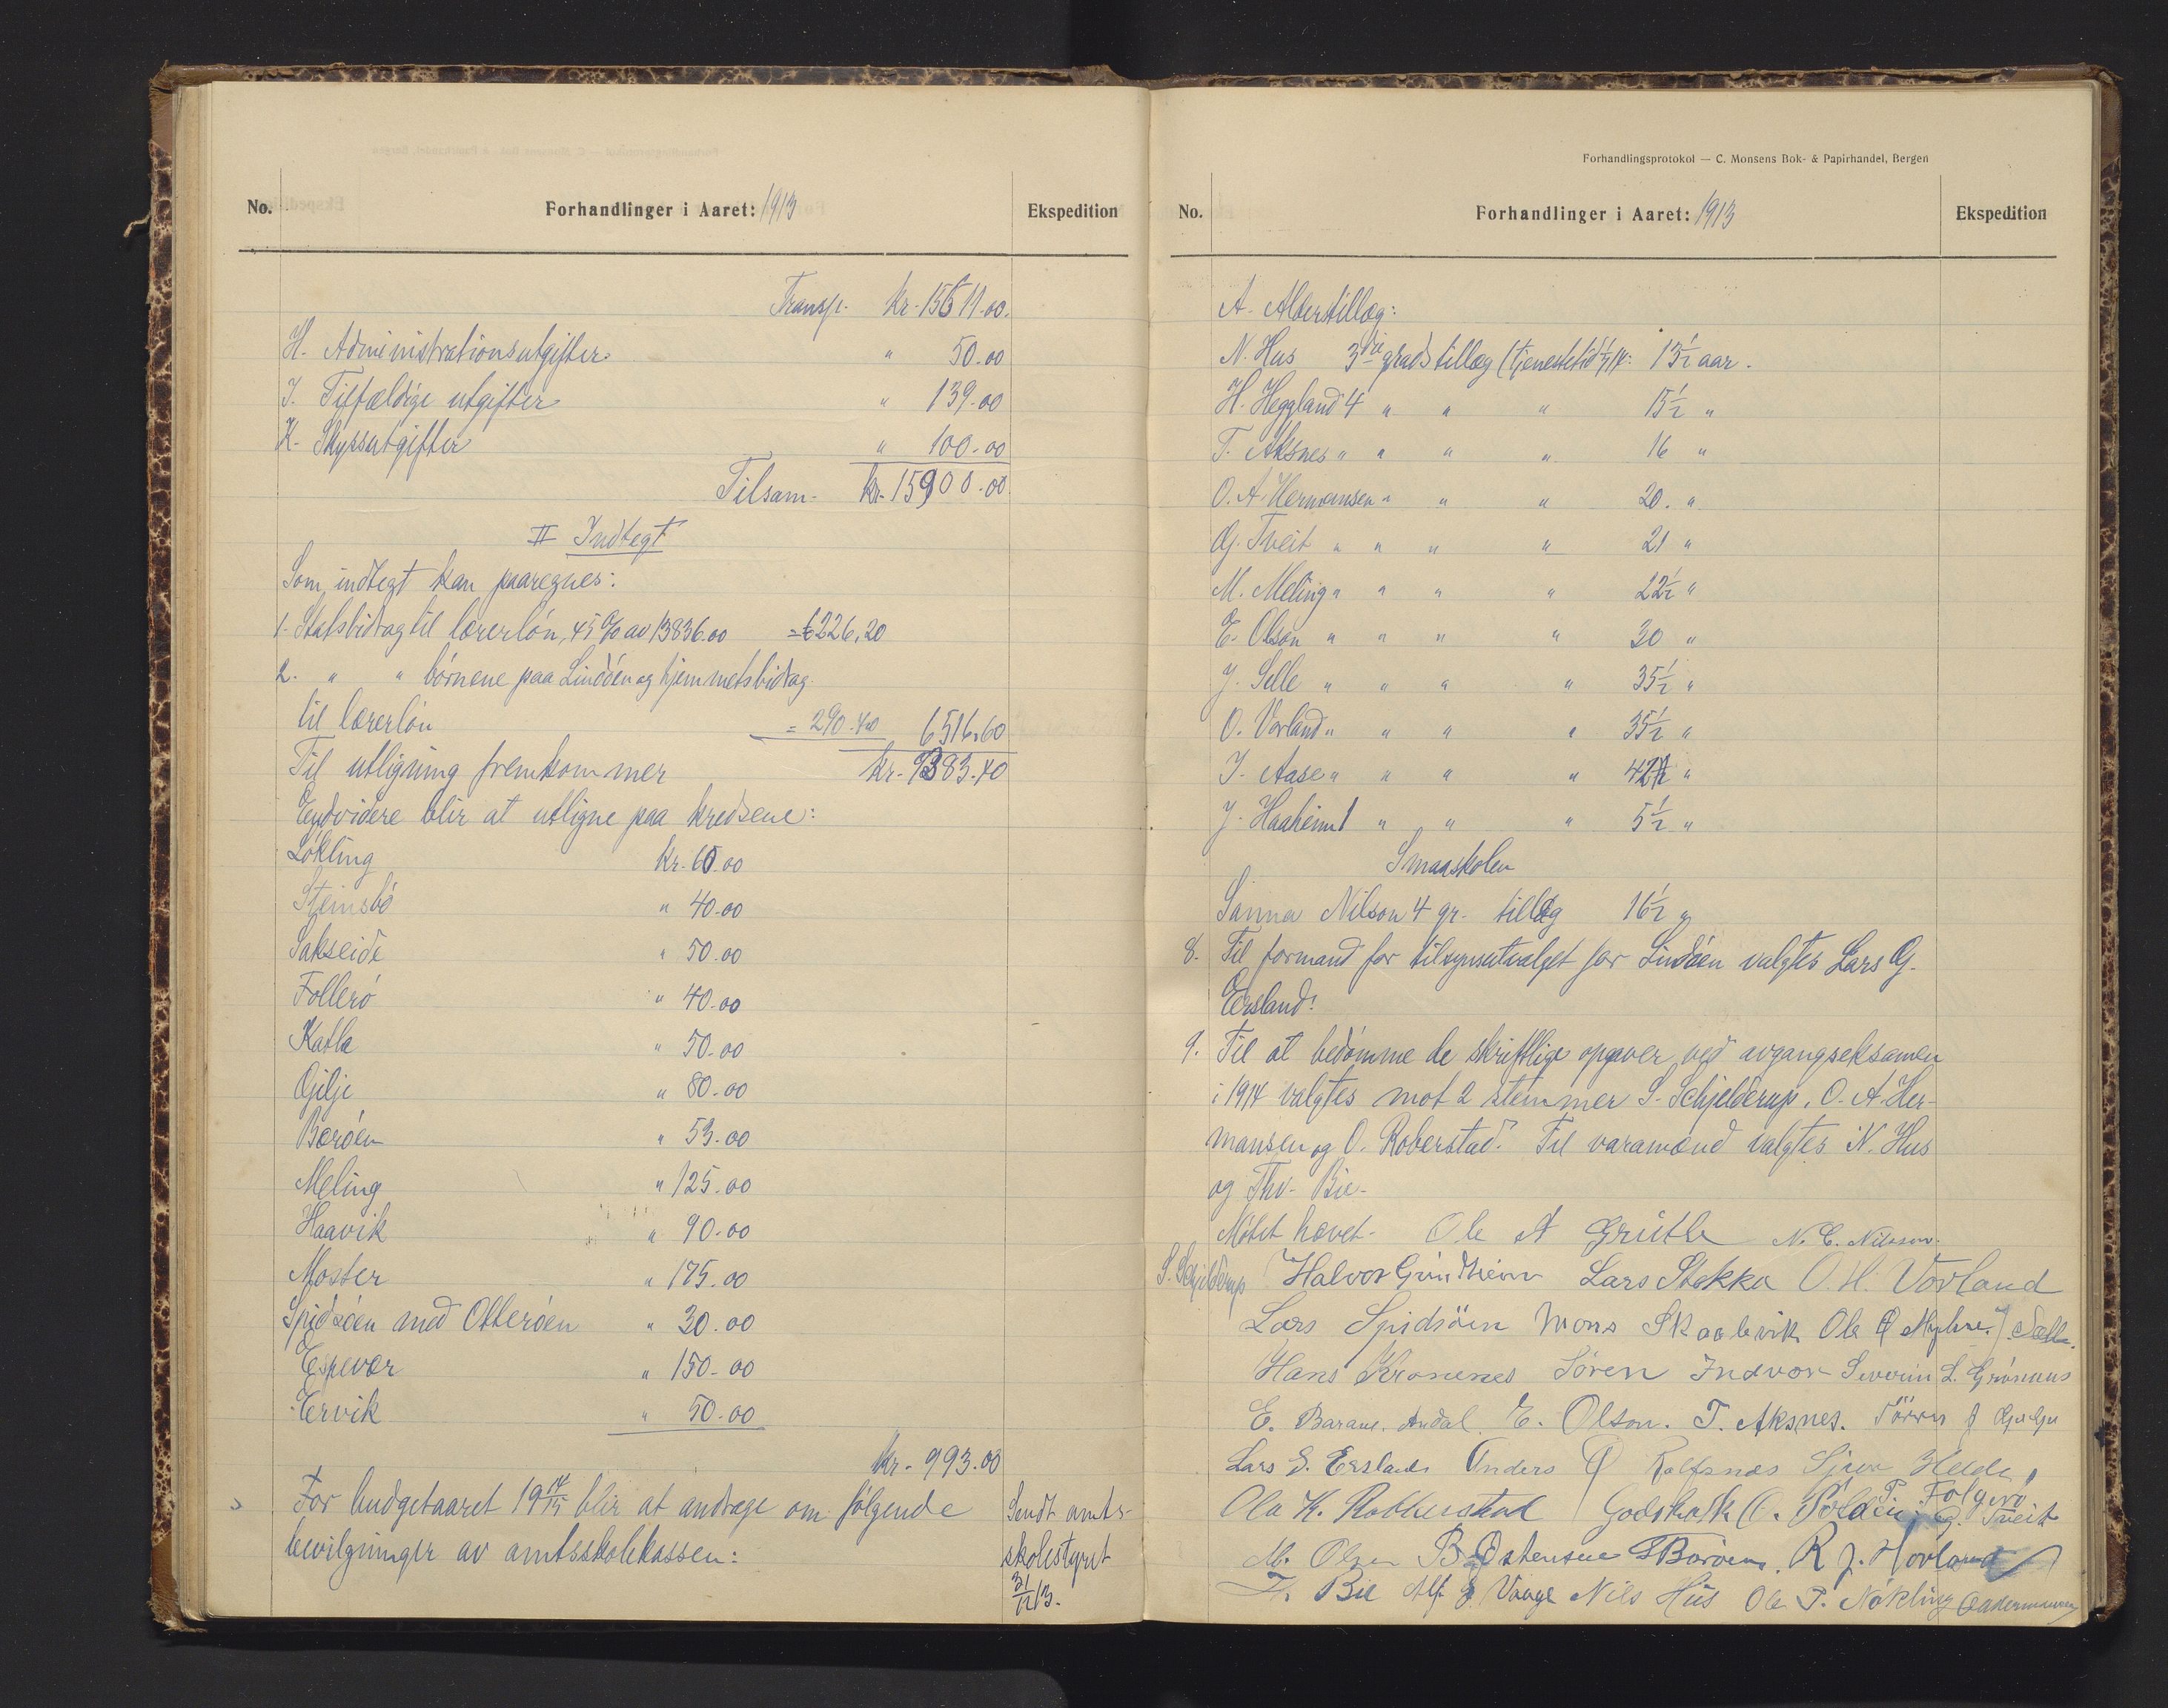 No.
Forhandlinger i Aaret: 1913
Ekspedition
Transp. Kr. 15611.00.
H. Administrationsutgifter " 50.00
I. Tilfældige utgifter " 139.00
K. Skyssutgifter " 100.00
Tilsam. kr. 15900.00
II Indtegt
Som indtegt kan paaregnes:
1. Statsbidrag til lærerløn, 45 % av 13836.00 = 6226,20
2. " " børnene paa Lindøen og hjemmetsbidrag
til lærerløn = 290.40 6516.60
Til utligning fremkommer kr. 9383.40
Endvidere blir at utligne paa kredsene:
Løkling Kr. 60.00
Steinsbø " 40.00
Sakseide " 50.00
Follerø " 40.00
Katla " 50.00
Gilje " 80.00
Børøen " 53.00
Meling " 125.00
Haavik " 90.00
Moster " 175.00
Spidsøen med Otterøen " 30.00
Espevær " 150.00
Ervik " 50.00
Kr. 993.00
For budgetaaret 19 14/15 blir at andrage om følgende
bevilgninger av amtsskolekassen:
Sendt amts-
skolestyret
31/12 13.
Forhandlingsprotokol — C. Monsens Bok- & Papirhandel, Bergen
No.
Forhandlinger i Aaret: 1913
Ekspedition
A. Alderstillæg:
N. Hus 3die gradstillæg (tjenestetid 1/7 14: 13 1/2 aar.
H. Heggland 4 " " " 15 1/2 "
T. Aksnes " " " " 16 "
O. A. Hermansen " " " 20. "
G. Tveit " " " " 21 "
M. Meling " " " " 22 1/2 "
E. Olson " " " " 30 "
J. Selle " " " " 35 1/2 "
O. Vorland " " " " 35 1/2 "
I. Aase " " " " 42 "
J. Haaheim 1 " " " 5 1/2 "
Smaaskolen
Sanna Nilson 4 gr. tillæg 16 1/2 "
8. Til formand for tilsynsutvalget for Lindøen valgtes Lars G.
Ersland.
9. Til at bedømme de skriftlige opgaver ved avgangseksamen
i 1914 valgtes mot 2 stemmer S. Schjelderup, O. A. Her-
mansen og O. Roberstad. Til varamænd valgtes N. Hus
og Thv. Bie.
Møtet hævet. Ole A Grutle N. C. Nilsson.
S. Schjelderup Halvor Grindheim Lars Stokka O. H. Vorland
Lars Spidsöen Mons Skaalevik Ole Myhre. J. Sælle.
Hans Kronenes Sören Indvær Severin L. Grönnus
E. Barane. Andal E. Olson. T. Aksnes. Sören
Lars G. Ersland Anders Rolfsnæs Helde
T. Folgerø
Ola K. Robberstad Godskalk G. Tveit
M. Olsen B Östensen Børöen. R J. Hovland
Th. Bie Alf Vaage Nils Hus Ole P. Nökling